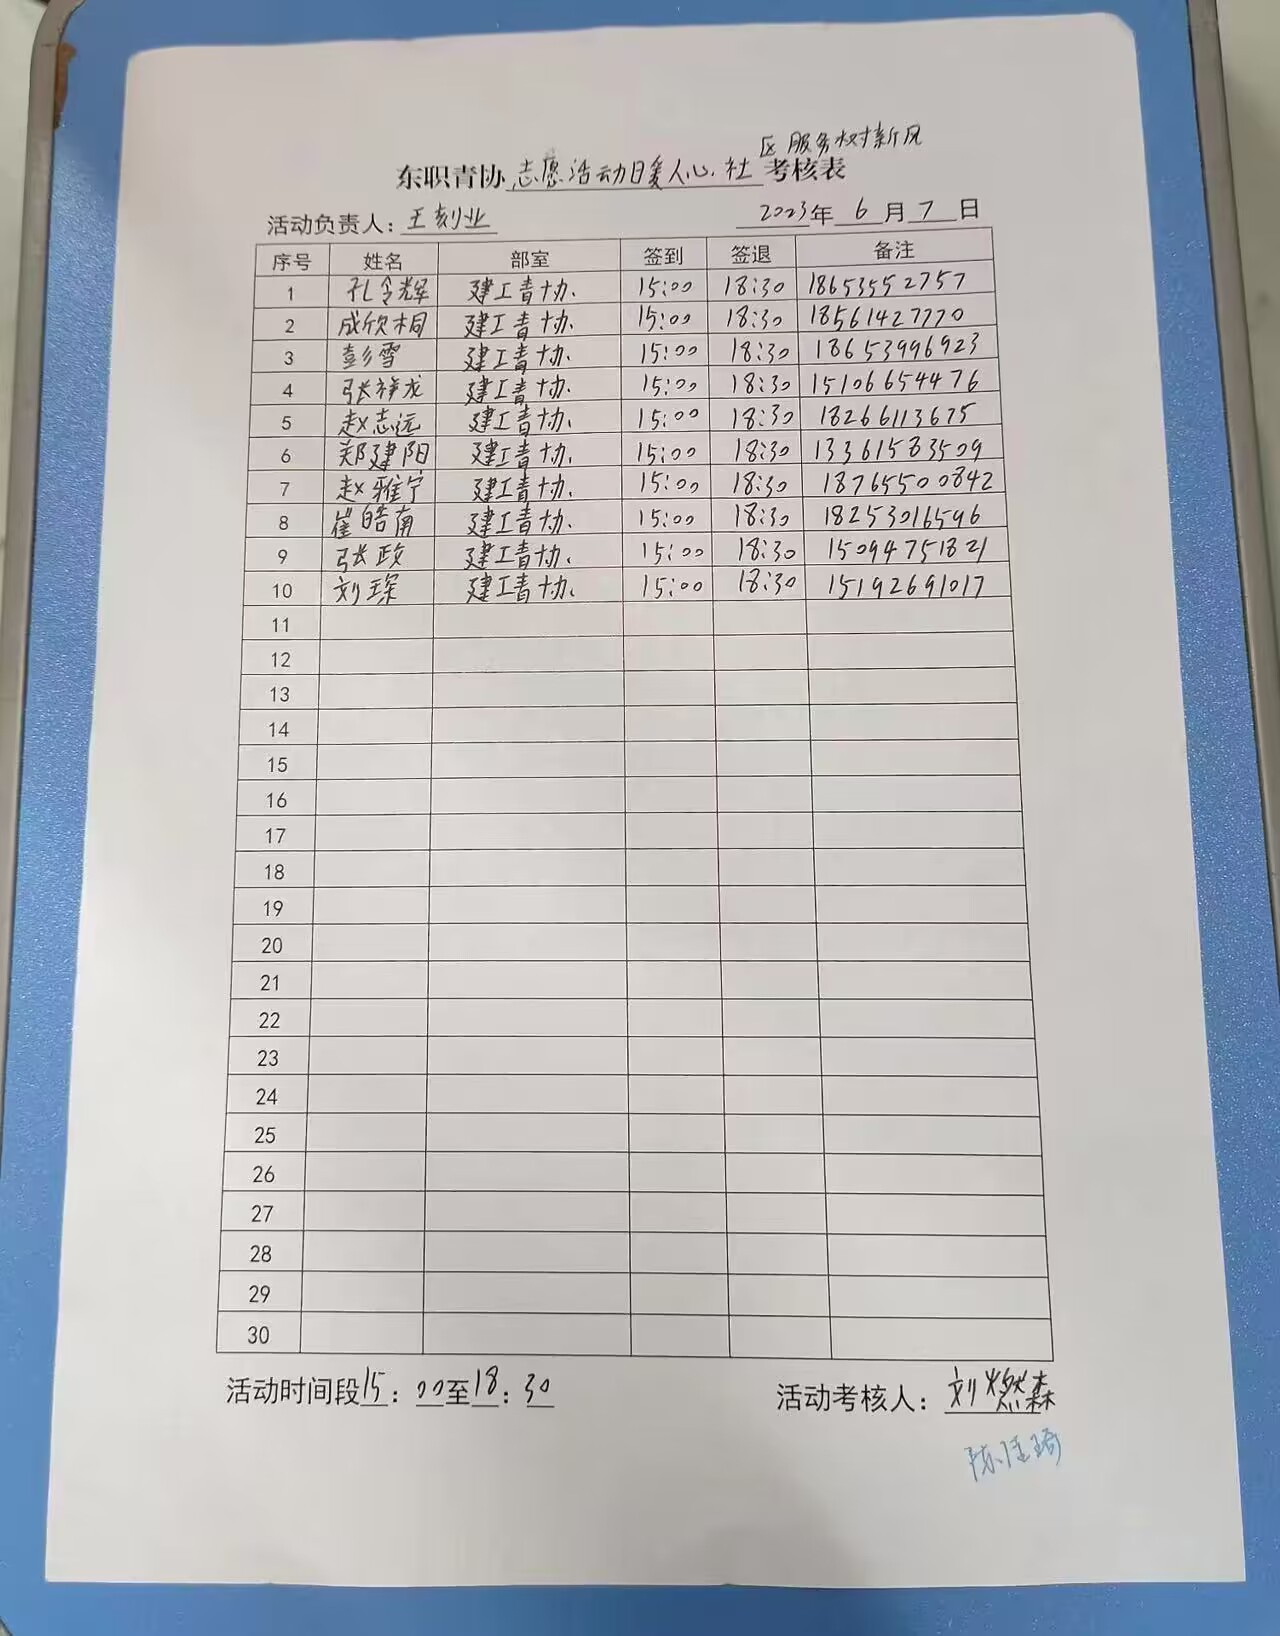 区服务树新风
东职青协志愿活动日爱人心.社考核表
活动负责人：王刻业 2023年6月7日
序号 姓名 部室 签到 签退 备注
1 孔令辉 建工青协. 15:00 18:30 18653552757
2 成欣桐 建工青协. 15:00 18:30 18561427770
3 彭雪 建工青协. 15:00 18:30 18653996923
4 张祥龙 建工青协. 15:00 18:30 15106654476
5 赵志远 建工青协. 15:00 18:30 18266113675
6 郑建阳 建工青协. 15:00 18:30 13361583509
7 赵雅宁 建工青协. 15:00 18:30 18765500842
8 崔皓南 建工青协. 15:00 18:30 18253016596
9 张政 建工青协. 15:00 18:30 15094751821
10 刘琛 建工青协. 15:00 18:30 15192691017
11
12
13
14
15
16
17
18
19
20
21
22
23
24
25
26
27
28
29
30
活动时间段15：00至18：30 活动考核人：刘燃森
陈佳琦